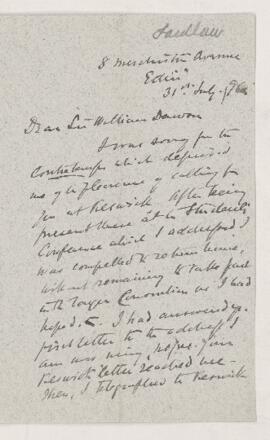 Laidlaw
8 Merchiston Avenue
Edinr
31st July
Dear Sir William Dawson
I was sorry for the
Contretemps which deprived
me of the pleasure of calling for
you at Keswick. After being
present there at the Students'
Conference which I addressed, I
was compelled to return home,
without remaining to take part
in the larger Convention as I had
hoped. I had answered yr.
first letter to the address I
am now using, before your
Keswick letter reached me.
Then, I telegraphed to Keswick